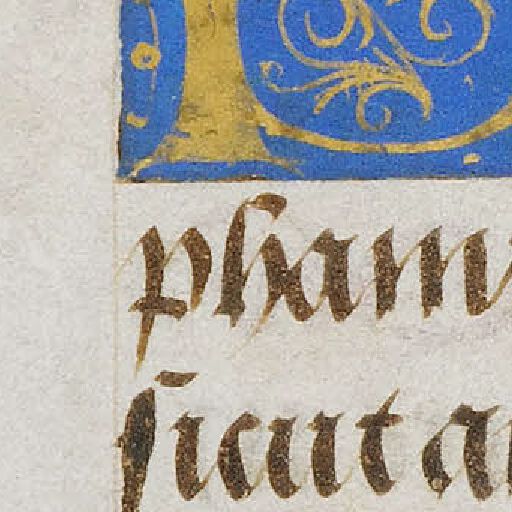 pham
sicut a